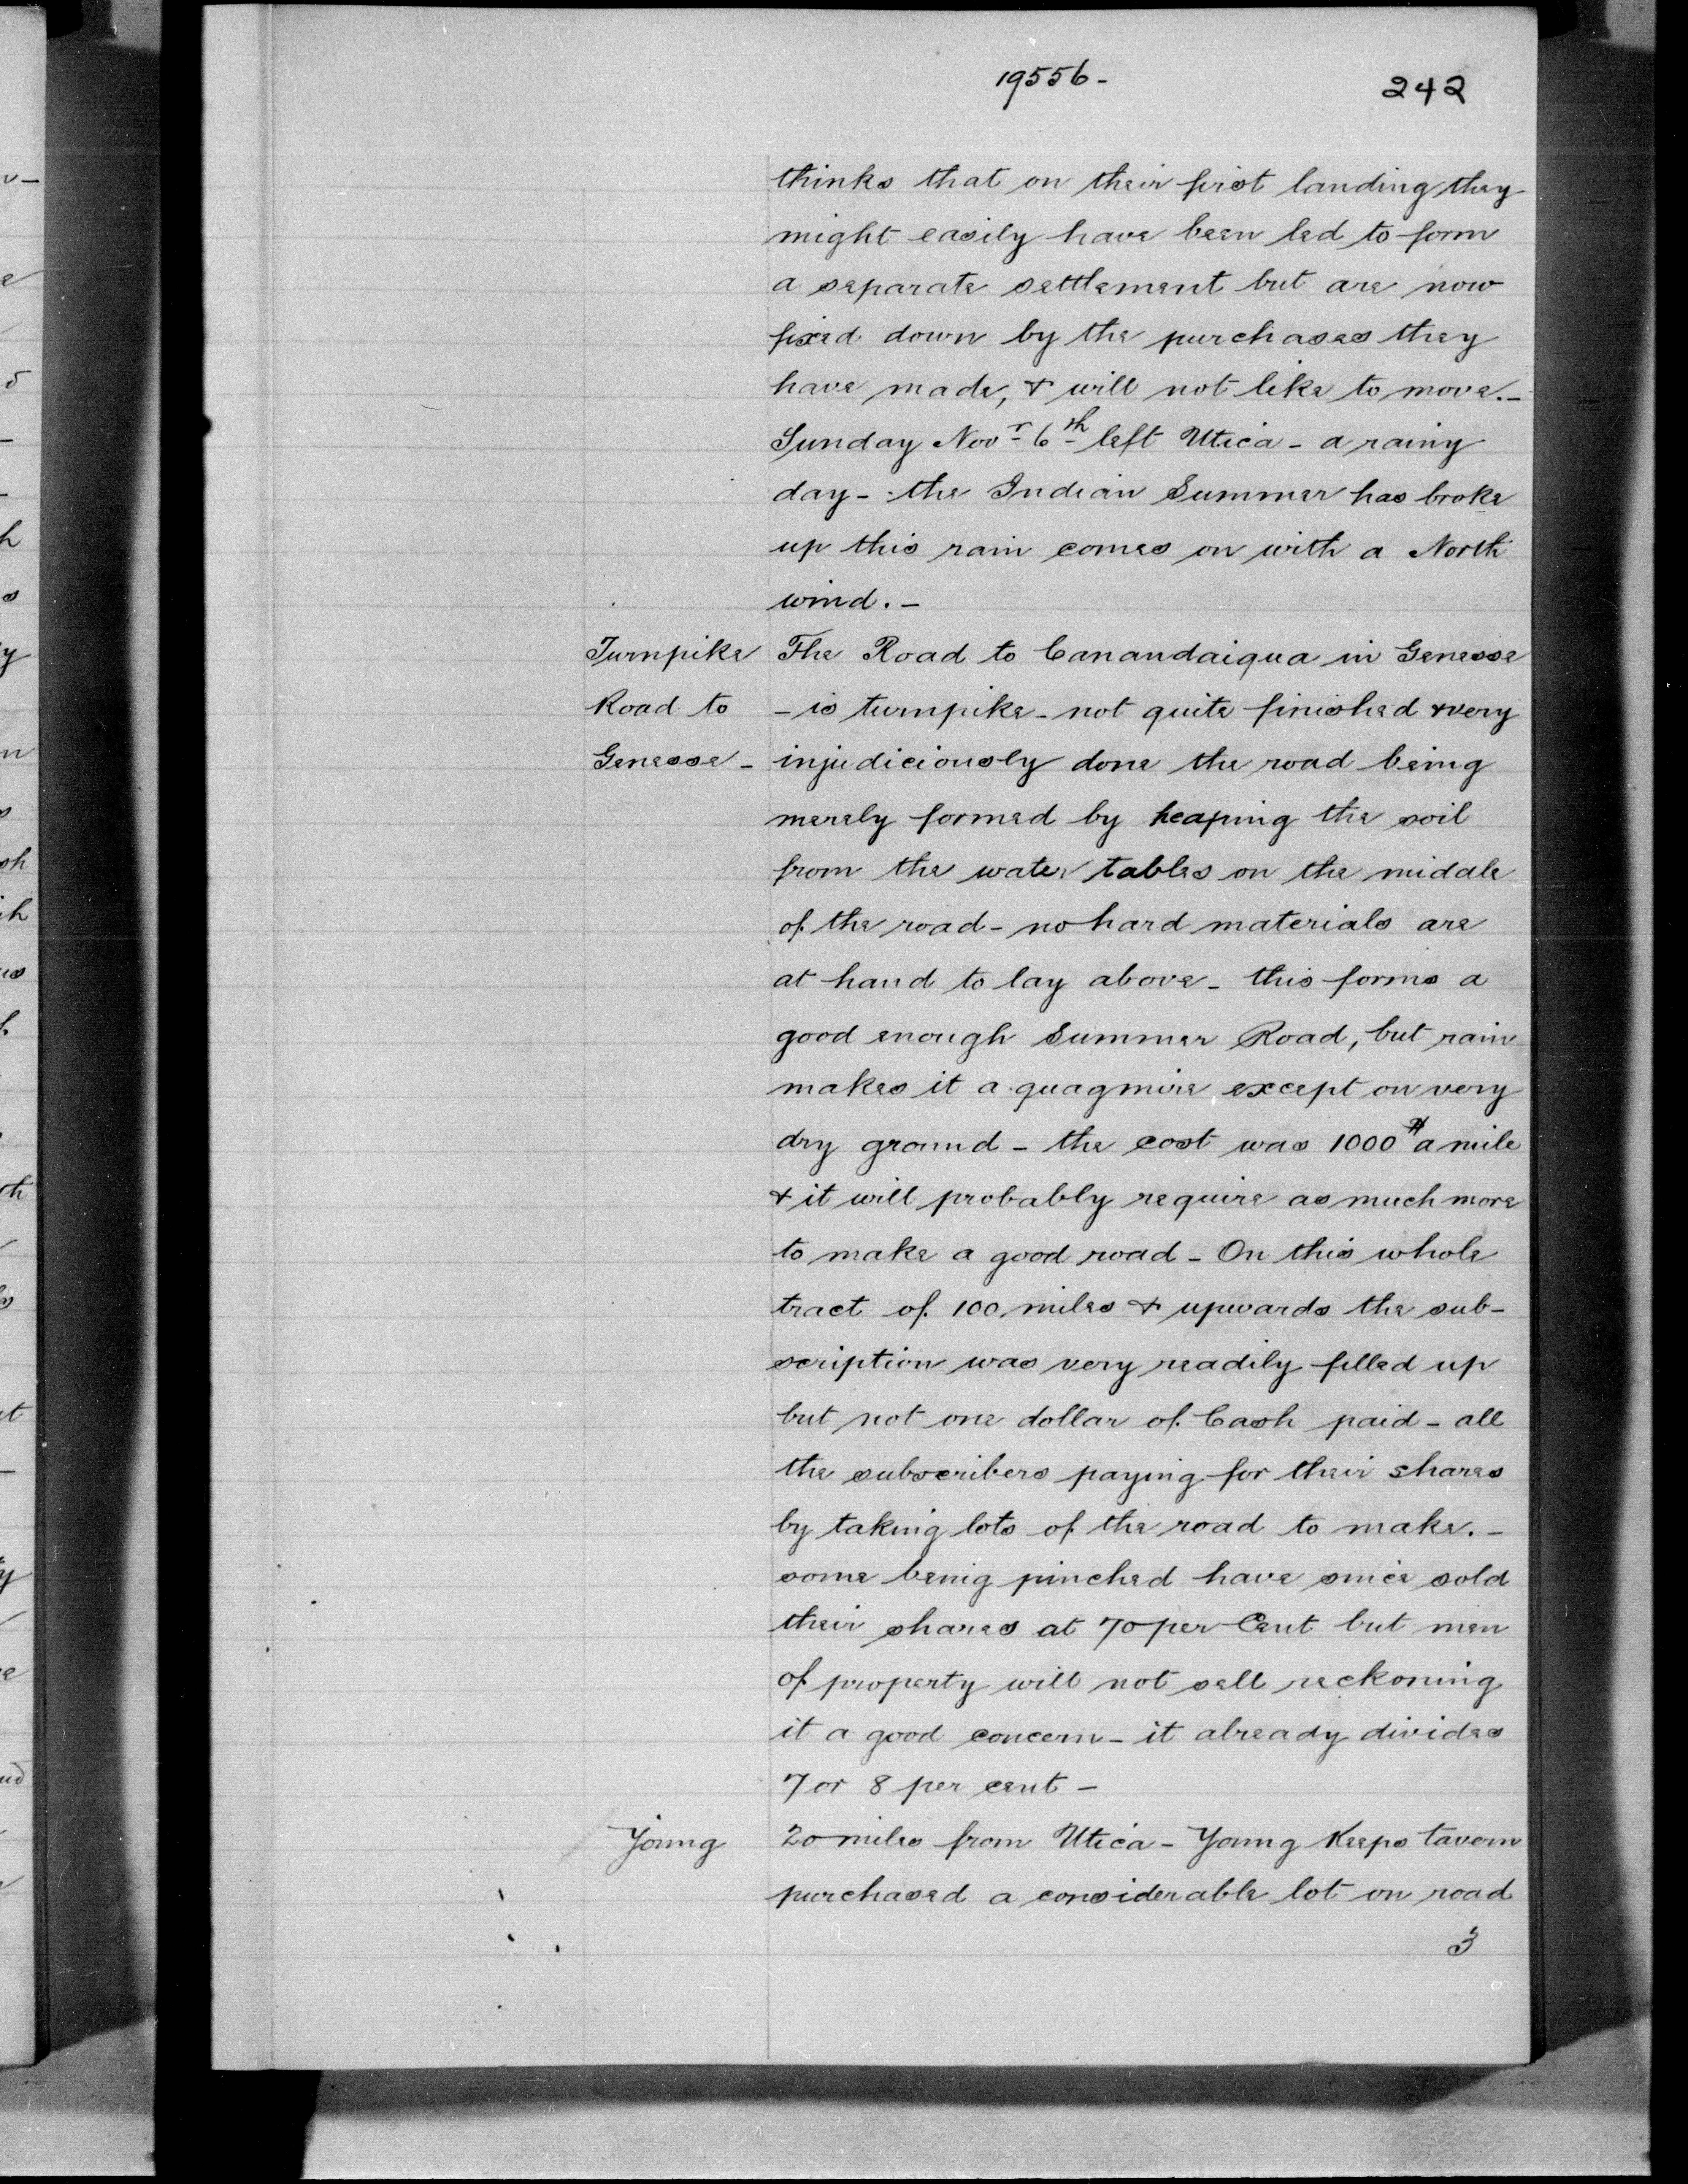 19556-
242
thinks that on their first landing they
might easily have been led to form
a separate settlement but are now
fixed down by the purchases they
have made, & will not like to move.-
Sunday Novr 6th left Utica - a rainy
day - the Indian Summer has broke
up this rain comes on with a North
wind. -
Turnpike The Road to Canandaigua in Genesse
Road to - is turnpike - not quite finished & very
Genesse - injudiciously done the road being
merely formed by heaping the soil
from the water tables on the middle
of the road - no hard materials are
at hand to lay above - this forms a
good enough Summer Road, but rain
makes it a quagmire except on very
dry ground - the cost was 1000$ a mile
& it will probably require as much more
to make a good road - On this whole
tract of 100 miles & upwards the sub-
scription was very readily filled up
but not one dollar of Cash paid - all
the subscribers paying for their shares
by taking lots of the road to make. -
some being pinched have since sold
their shares at 70 per Cent but men
of property will not sell reckoning
it a good concern - it already divides
7 or 8 per cent -
Young 20 miles from Utica - Young Keeps tavern
purchased a considerable lot on road
3